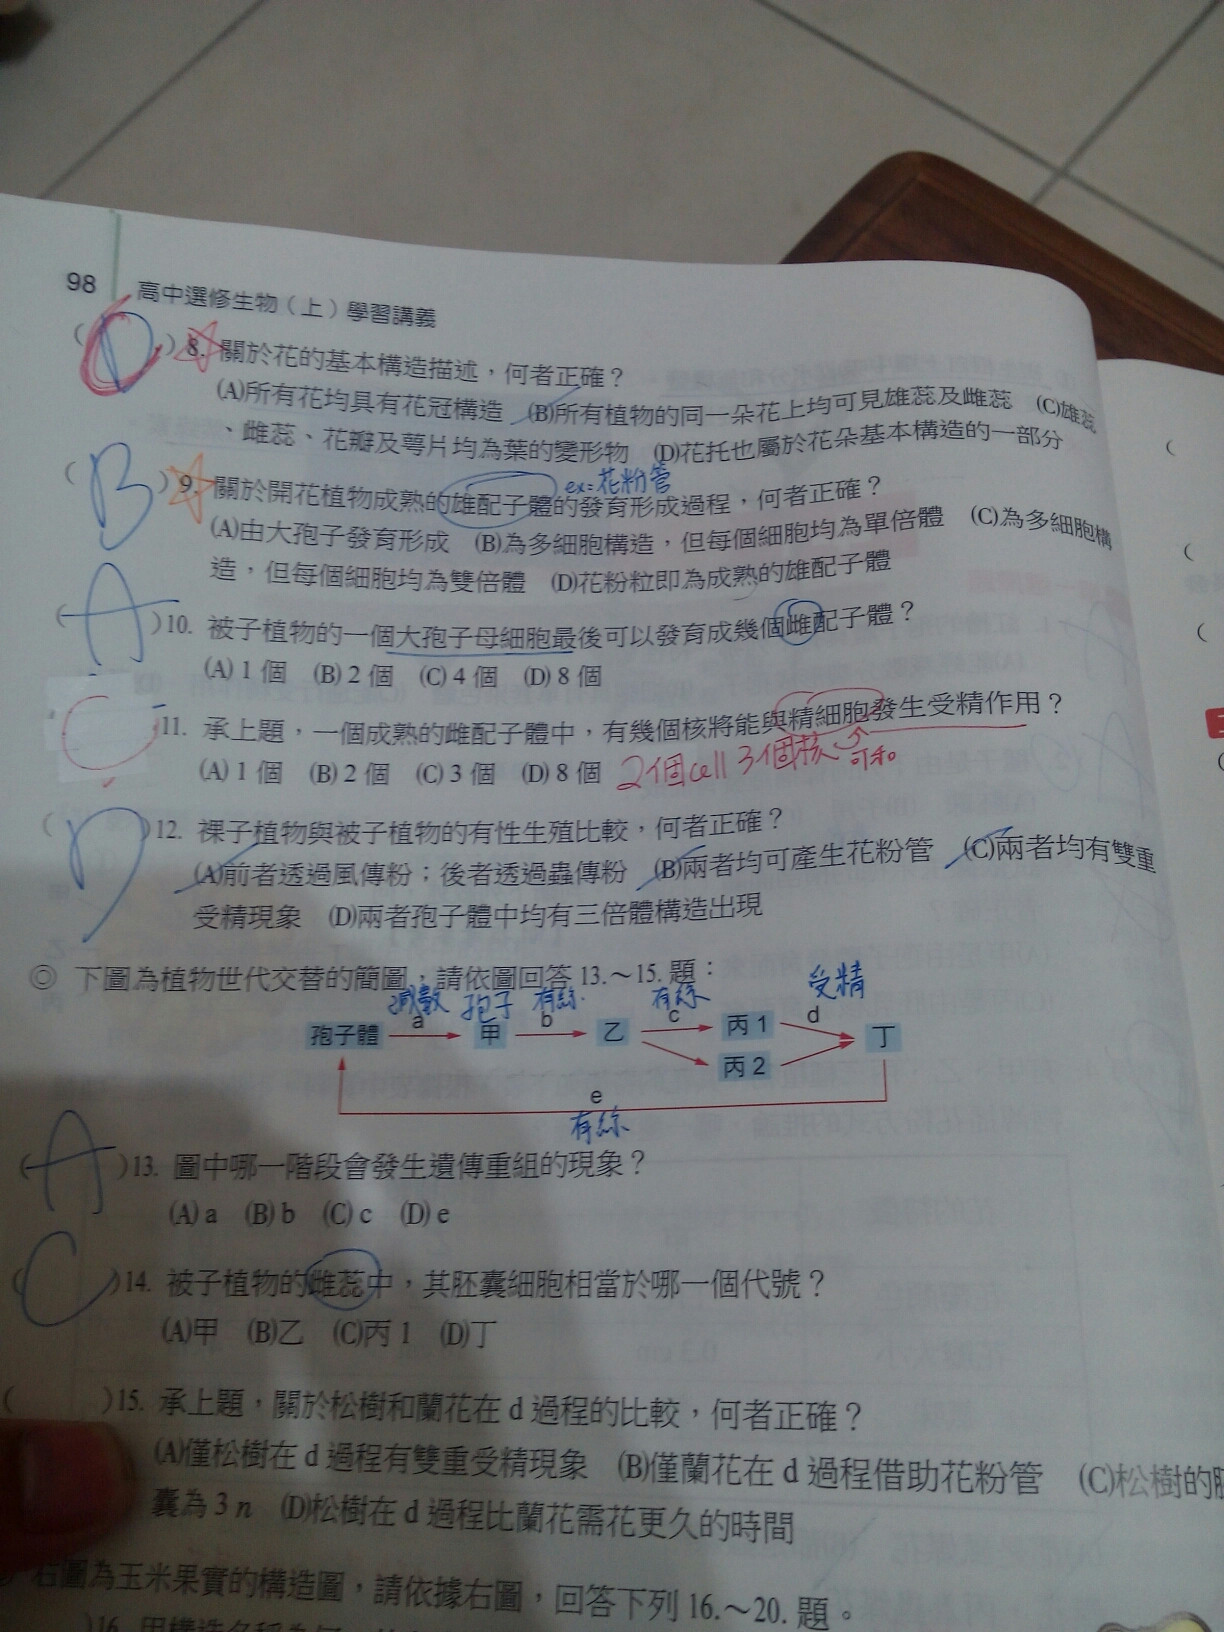 98 高中選修生物（上）學習講義
( D )8. 關於花的基本構造描述，何者正確？
(A)所有花均具有花冠構造 (B)所有植物的同一朵花上均可見雄蕊及雌蕊 (C)雄蕊
、雌蕊、花瓣及萼片均為葉的變形物 (D)花托也屬於花朵基本構造的一部分
ex=花粉管
( B )9. 關於開花植物成熟的雄配子體的發育形成過程，何者正確？
(A)由大孢子發育形成 (B)為多細胞構造，但每個細胞均為單倍體 (C)為多細胞構
造，但每個細胞均為雙倍體 (D)花粉粒即為成熟的雄配子體
( A )10. 被子植物的一個大孢子母細胞最後可以發育成幾個雌配子體？
(A) 1 個 (B) 2 個 (C) 4 個 (D) 8 個
( C )11. 承上題，一個成熟的雌配子體中，有幾個核將能與精細胞發生受精作用？
(A) 1 個 (B) 2 個 (C) 3 個 (D) 8 個 2個cell 3個核 可和
( D )12. 裸子植物與被子植物的有性生殖比較，何者正確？
(A)前者透過風傳粉；後者透過蟲傳粉 (B)兩者均可產生花粉管 (C)兩者均有雙重
受精現象 (D)兩者孢子體中均有三倍體構造出現
◎ 下圖為植物世代交替的簡圖，請依圖回答 13.～15. 題：
減數 孢子 有絲 有絲 受精
a b c d
孢子體 甲 乙 丙 1 丁
丙 2
e
有絲
( A )13. 圖中哪一階段會發生遺傳重組的現象？
(A) a (B) b (C) c (D) e
( C )14. 被子植物的雌蕊中，其胚囊細胞相當於哪一個代號？
(A)甲 (B)乙 (C)丙 1 (D)丁
( )15. 承上題，關於松樹和蘭花在 d 過程的比較，何者正確？
(A)僅松樹在 d 過程有雙重受精現象 (B)僅蘭花在 d 過程借助花粉管 (C)松樹的胚
囊為 3 n (D)松樹在 d 過程比蘭花需花更久的時間
右圖為玉米果實的構造圖，請依據右圖，回答下列 16.～20. 題。
)16.